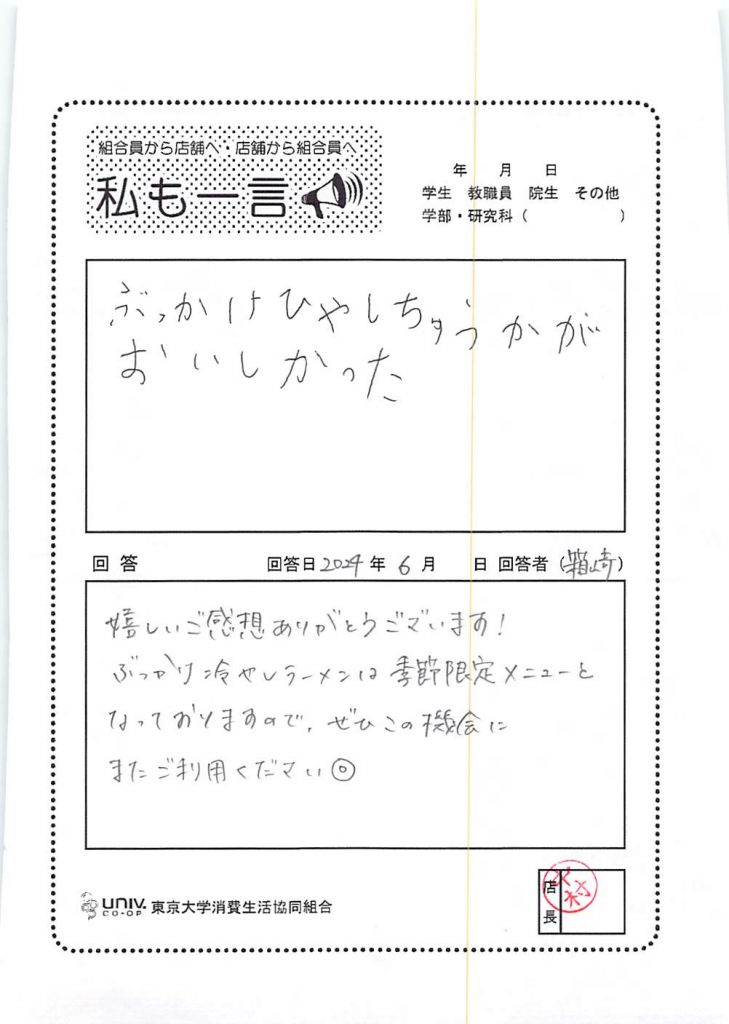 組合員から店舗へ・店舗から組合員へ
私も一言
年 月 日
学生 教職員 院生 その他
学部・研究科（ ）
ぶっかけひやしちゅうかが
おいしかった
回答 回答日2024年6月 日 回答者（箱崎）
嬉しいご感想ありがとうございます！
ぶっかけ冷やしラーメンは季節限定メニューと
なっておりますので、ぜひこの機会に
またご利用ください◎
店長
UNIV. CO-OP 東京大学消費生活協同組合